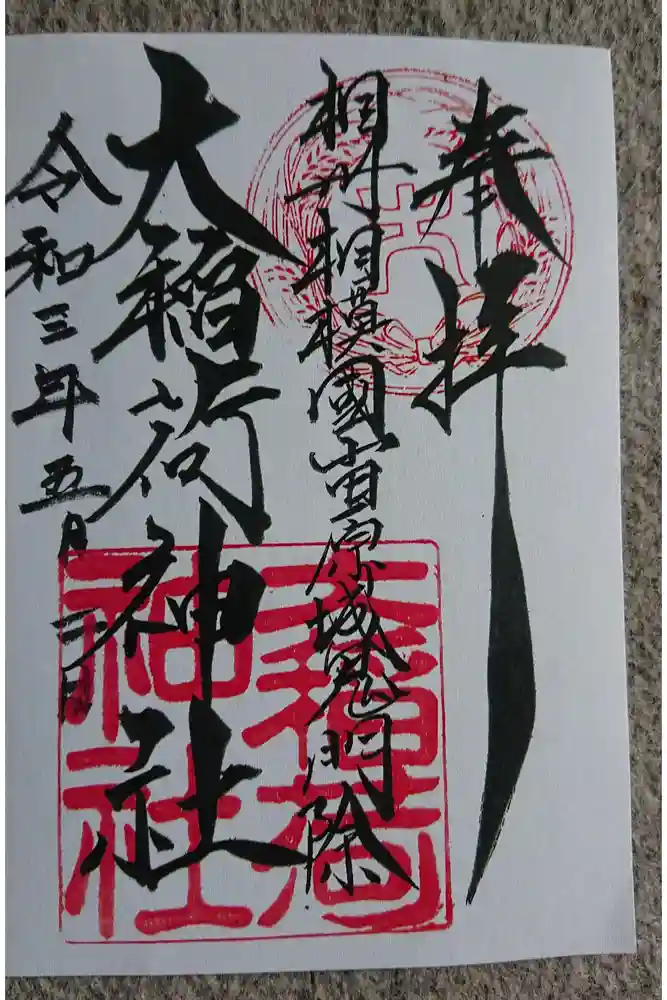 奉拝
相州相模國小田原城鬼門除
大稲荷神社
令和三年五月三日
大
大稲荷
神社